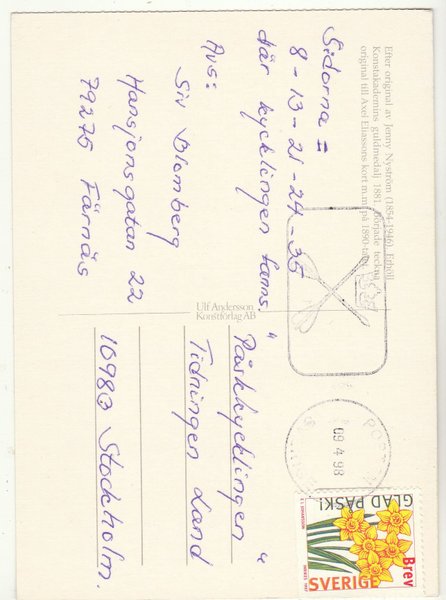 Efter original av Jenny Nyström (1854-1946). Erhöll
Konstakademins guldmedalj 1881. Började teckna
original till Axel Eliassons kort m.m. på 1890-talet.
Sidorna =
8-13-21-24-35
där kycklingen fanns.
Avs:
Siv Blomberg
Hansjonsgatan 22
79275 Färnäs
Ulf Andersson
Konstförlag AB
"Påskkycklingen"
Tidningen Land
10983 Stockholm.
09.4.98
GLAD PÅSK!
Brev
SVERIGE